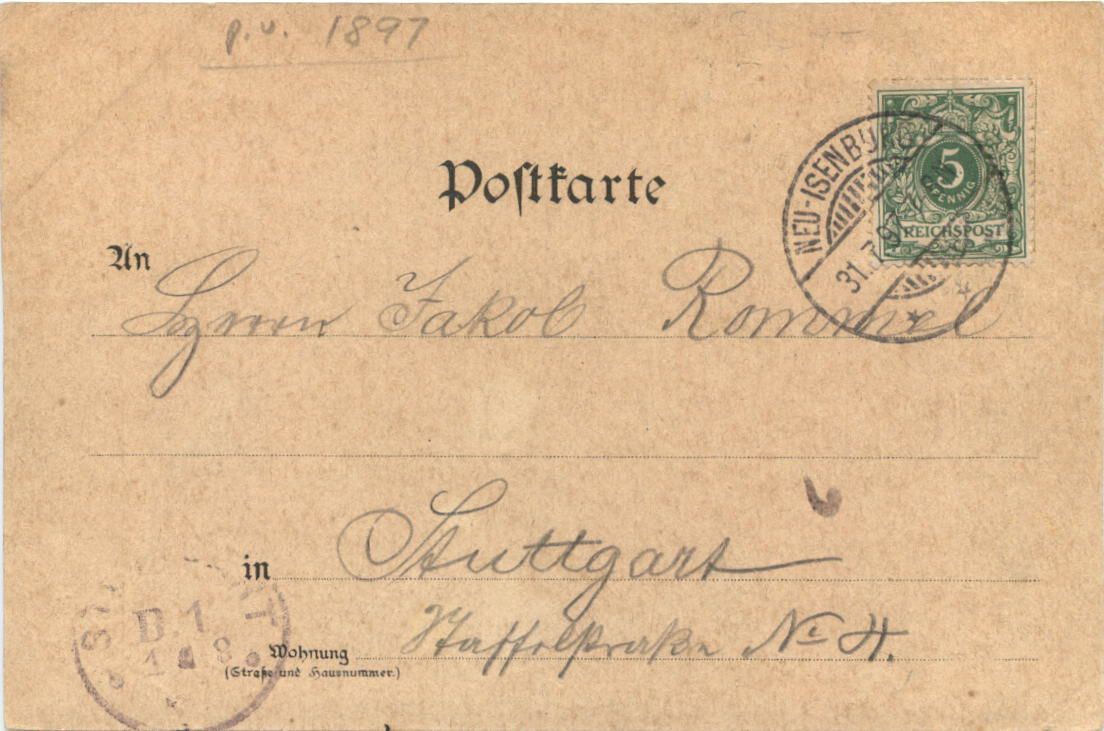 p.v. 1897
Postkarte
5
PFENNIG
REICHSPOST
NEU-ISENBU
31.7.97
An
Herrn Jakob Rommel
in Stuttgart
Staffelstraße No 4.
Wohnung
(Straße und Hausnummer.)
B.1
1 8